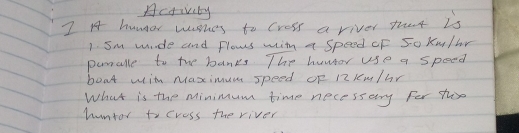 Activity
1 A hunter wishes to cross a river that is
1.5m wide and flows with a speed of 5.0km/hr
paralle to the banks The hunter use a speed
boat with maximum speed of 12km/hr
What is the minimum time necessary for the
hunter to cross the river